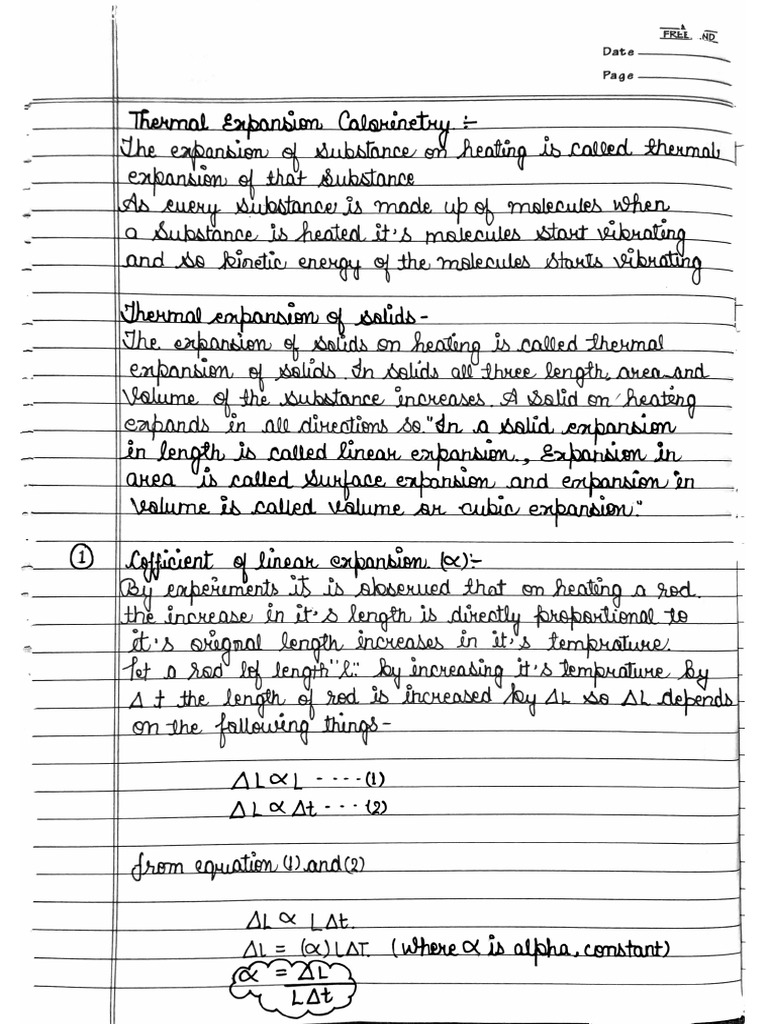 FREE ND
Date
Page
Thermal Expansion Calorinetry :-
The expansion of substance on heating is called thermal
expansion of that substance
As every substance is made up of molecules when
a substance is heated it's molecules start vibrating
and so kinetic energy of the molecules starts vibrating
Thermal expansion of solids -
The expansion of solids on heating is called thermal
expansion of solids. In solids all three length, area and
volume of the substance increases. A solid on heating
expands in all directions so. "In a solid expansion
in length is called linear expansion., Expansion in
area is called surface expansion and expansion in
volume is called volume or cubic expansion."
① Cofficient of linear expansion (α):-
By experiments it is observed that on heating a rod.
the increase in it's length is directly proportional to
it's orignal length increases in it's temprature.
Let a rod lof length "L". by increasing it's temprature by
Δt the length of rod is increased by ΔL so ΔL depends
on the following things -
ΔL ∝ L ---- (1)
ΔL ∝ Δt --- (2)
from equation (1) and (2)
ΔL ∝ LΔt.
ΔL = (α) LΔT. (where α is alpha, constant)
α = ΔL
LΔt